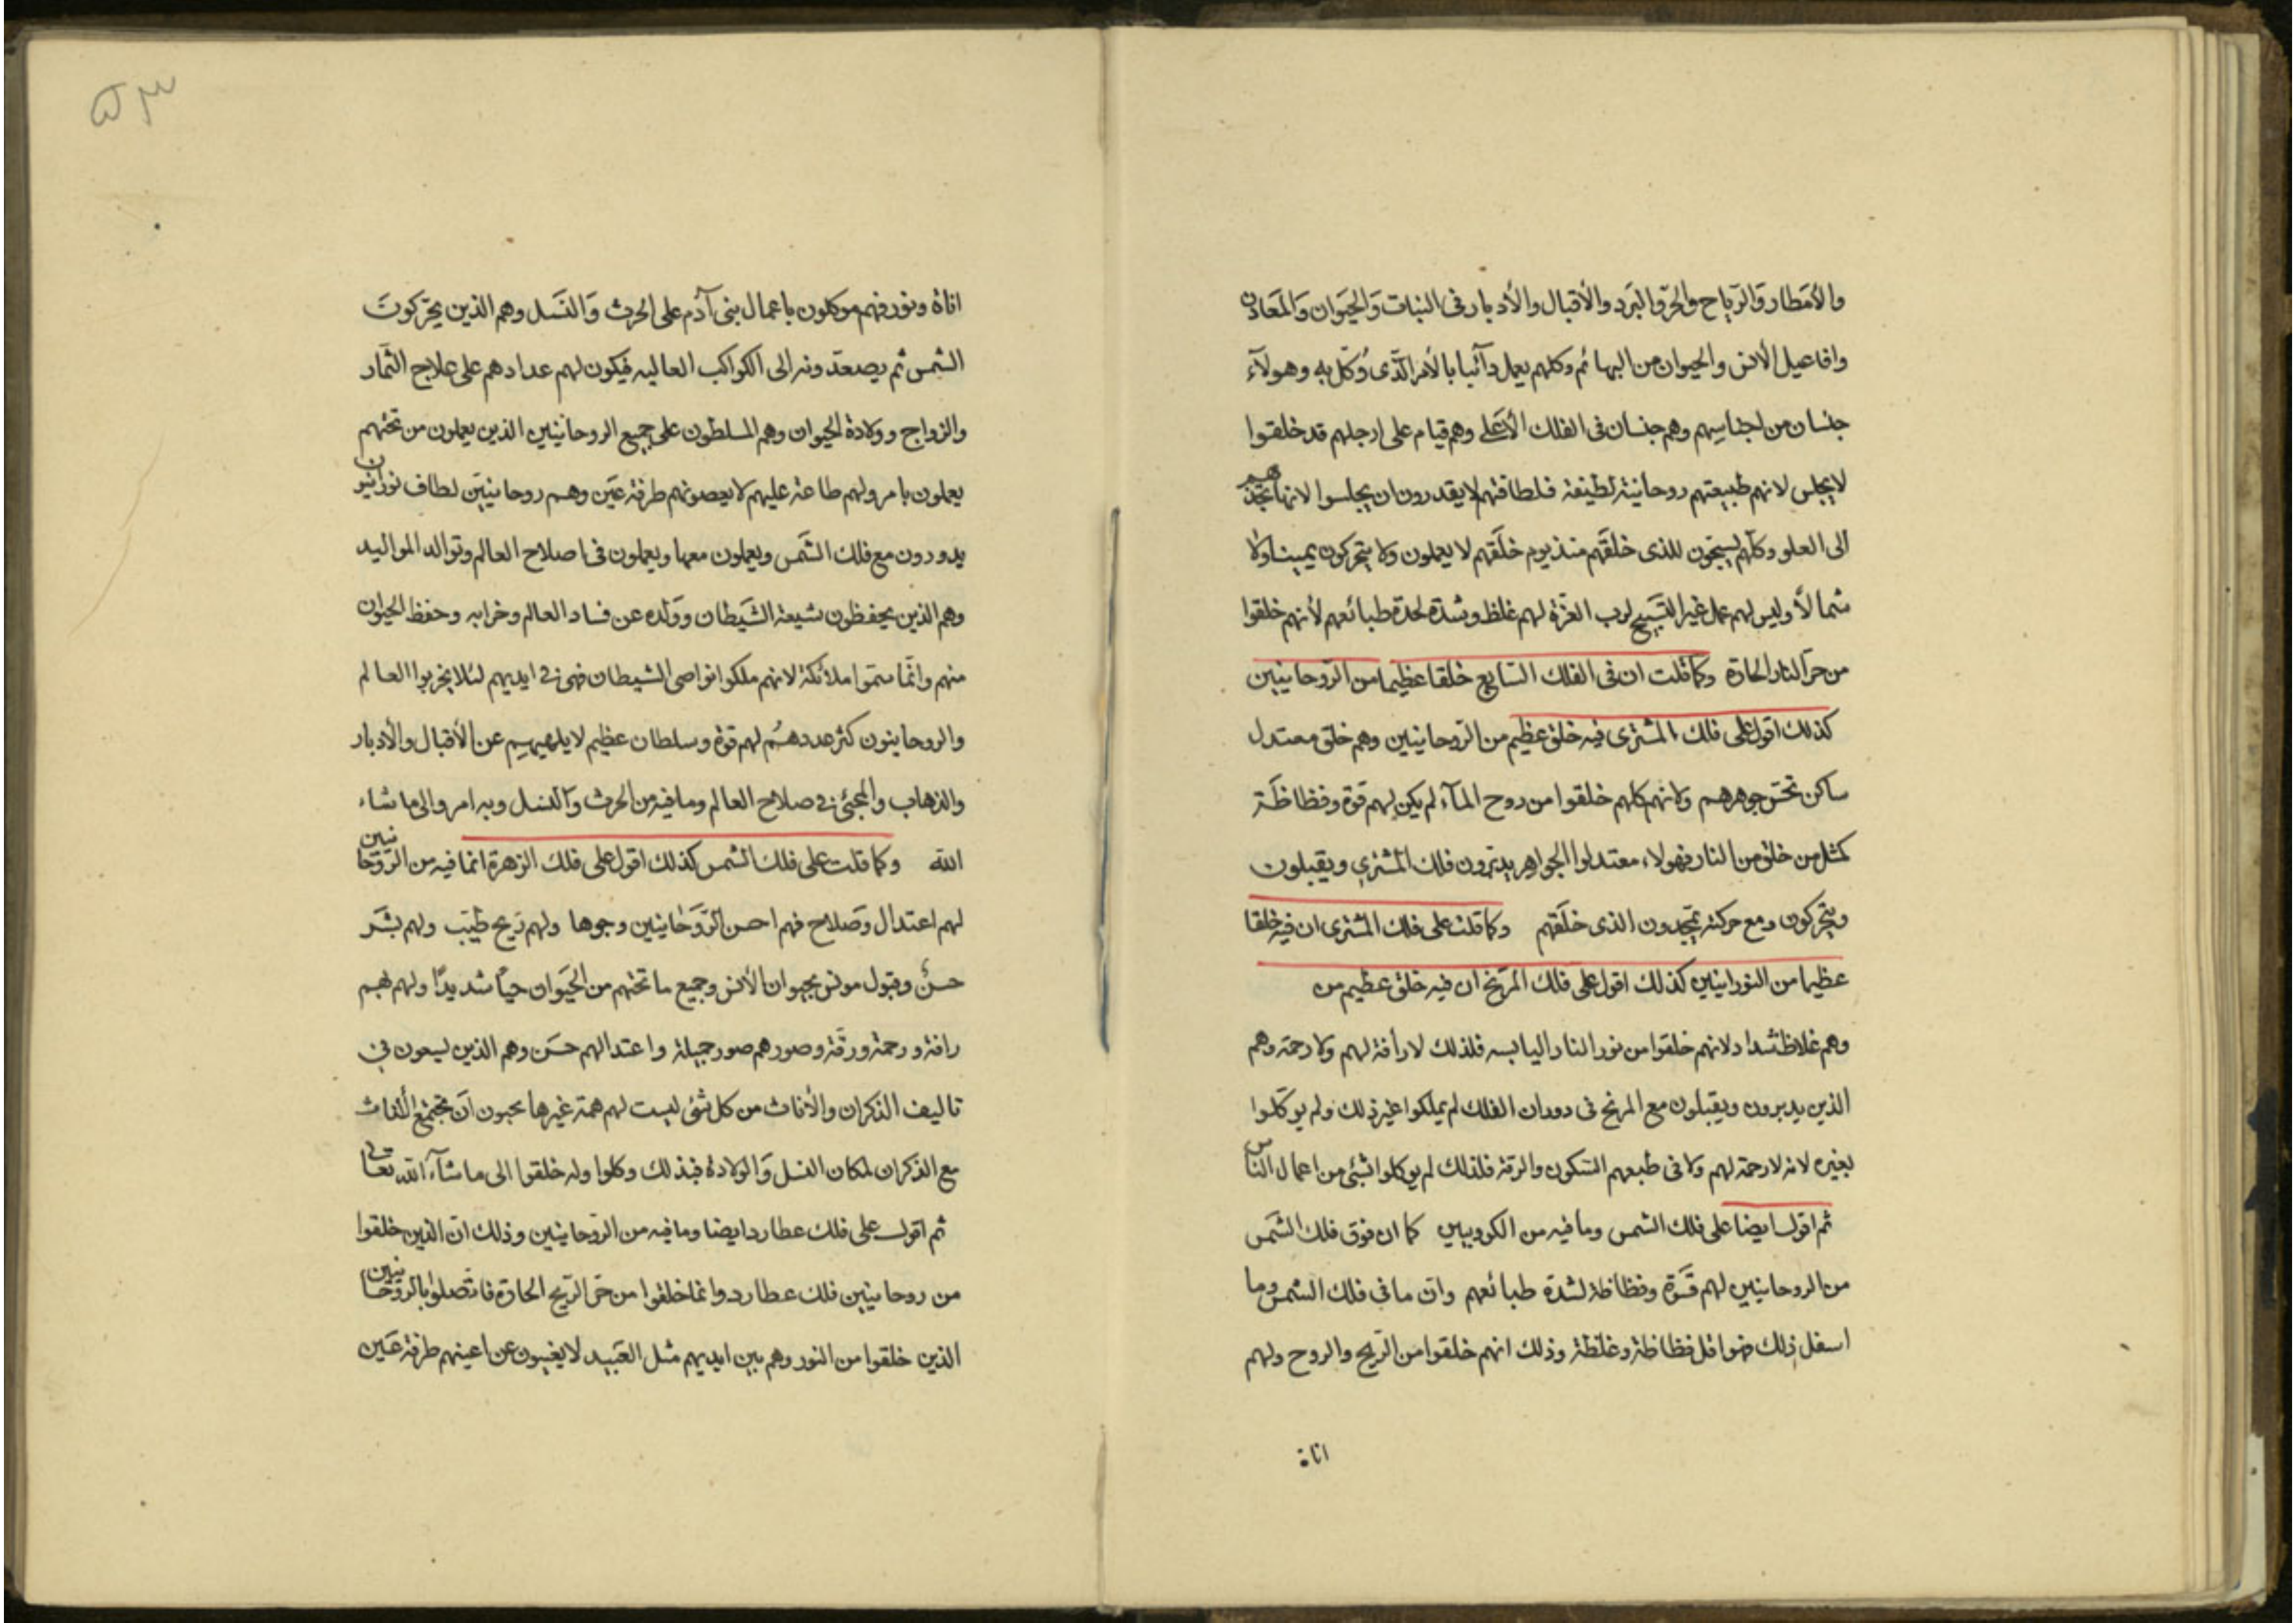 والأمطار والرّياح والحرّ والبرد والأقبال والأدبار فى النبات وَالحيَوان وَالمَعادن
وافاعيل الانس والحيوان من البهائم وكلهم يعمل دآئبا بالأمر الّذى وُكّل به وهولآء
جنسان من اجناسهم وهم جنسان فى الفلك الأعلى وهم قيام على ارجلهم قد خلقوا
لايجلس لانهم طبيعتهم روحانية لطيفة فلطافتهم لايقدرون ان يجلسوا لانها تجذبهم
الى العلو وكلّهم يسبّحون للذى خلقَهم منذ يوم خلَقهم لا يعملون ولا يتحركون يمينا ولا
شمالاً وليس لهم عمل غير التسَبيح لرب العزّة لهم غلظ وشدّة لحدة طبائعهم لأنهم خلقوا
من حرّ النار الحارة وكما قلت ان فى الفلك السّابع خلقا عظيما من الرّوحانيين
كذلك اقول على فلك المشترى فيه خلق عظيم من الرّوحانيين وهم خلق معتدل
ساكن جوهرهم ولانهم كلهم خلقوا من روح المآء لم يكن لهم قوة وفظاظَة
كمثل من خلق من النار فهولاء معتدلوا الجواهر يدبّرون فلك المشترى ويقبلون
ويتحركون ومع حركته يمجّدون الذى خلَقهم وكما قلت على فلك المشترى ان فيه خلقا
عظيما من النورانيين كذلك اقول على فلك المرّيخ ان فيه خلق عظيم من
وهم غلاظ شداد لانهم خلقوا من نور النار اليابسه فلذلك لا رأفة لهم ولا رحمة وهم
الذين يدبرون ويقبلون مع المريخ فى دوران الفلك لم يملكوا غير ذلك ولم يوكّلوا
بغيره لانه لا رحمة لهم ولا فى طبعهم السّكون والرقة فلذلك لم يوكلوا بشئ من اعمال النّاس
ثم اقول ايضا على فلك الشمس وما فيه من الكروبيين كما ان فوق فلك الشّمس
من الروحانيين لهم قسَوة وفظاظة لشدة طبائعهم وانّ ما فى فلك الشمس وما
اسفل ذلك فهو اقل فظاظة وغلظة وذلك انهم خلقوا من الرّيح والروح ولهم
اناة
٥٣
اناة ونور فهم موكلون باعمال بنى آدَم على الحرث وَالنَسل وهم الذين يحرّكونَ
الشمس ثم يصعدونه الى الكواكب العاليه فيكون لهم عدادهم على علاج الثّمار
والزواج وولادة الحيوان وهم المسلطون على جميع الروحانيين الذين يعملون من تحتهم
يعملون بامرولهم طاعة عليهم لا يعصونهم طرفة عَين وهم روحانيين لطاف نورانيون
يدورون مع فلك الشَمس ويعملون معها ويعملون فى اصلاح العالم وتوالد المواليد
وهم الذين يحفظون شيعة الشَيطان ووَلده عن فساد العالم وخرابه وحفظ الحيوان
منهم وانّما سمّوا ملائكة لانهم ملكوا نواصى الشيطان فهى فى ايديهم لئلا يخربوا العالم
والروحانيون كثر عددهُم لهم قوة وسلطان عظيم لا يلهيهم عن الأقبال والأدبار
والذهاب والمجئ فى صلاح العالم وما فيه من الحرث وَالنسل وبه امروا الى ما شاء
الله وكما قلت على فلك الشمس كذلك اقول على فلك الزهرة انما فيه من الرّوحانيين
لهم اعتدال وصَلاح فهم احسن الرّوَحانيين وجوها ولهم رَيح طيّب ولهم بشَر
حسنٌ وقبول مونس يحبوان الأنس وجميع ما تحتهم من الحيَوان حبّا شديدًا ولهم فهم
رافة ورحمة ورقَة وصورهم صور جميلة واعتدالهم حسَن وهم الذين يسعون فى
تاليف الذكران والأناث من كل شئ ليست لهم همة غيرها يحبون ان تجتمع الأناث
مع الذكران لمكان النسل وَالولادة فبذلك وكلوا وله خلقوا الى ما شآء الله تعالى
ثم اقول على فلك عطارد ايضا وما فيه من الرّوحانيين وذلك انّ الذين خلقوا
من روحانيين فلك عطارد وانما خلقوا من حرّ الرّيح الحارة فاتّصلوا بالروّحانيين
الذين خلقوا من النور وهم بين ايديهم مثل العَبيد لا يغيبون عن اعينهم طرفة عَين